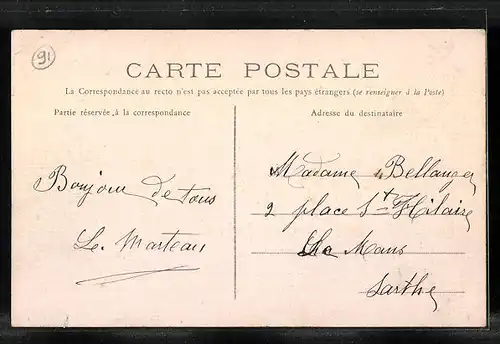 91
CARTE POSTALE
La Correspondance au recto n'est pas acceptée par tous les pays étrangers (se renseigner à la Poste)
Partie réservée à la correspondance
Adresse du destinataire
Bonjour de tous
Le Marteau
Madame Bellanger
2 place St Hilaire
Le Mans
Sarthe